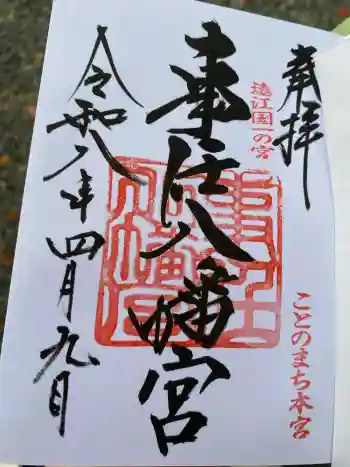 奉拝
遠江國一の宮
ことのまち本宮
事任八幡宮
令和八年四月九日